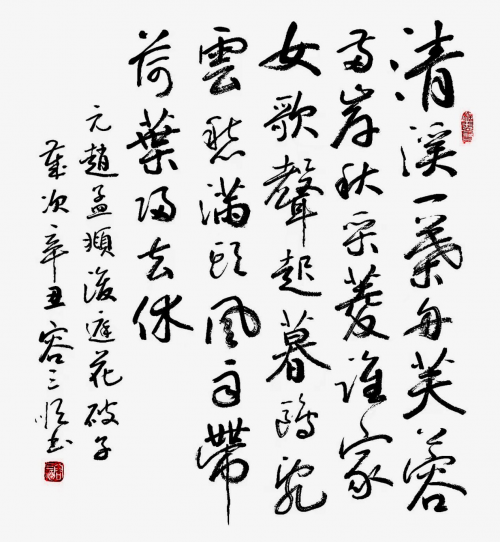 清溪一葉舟芙蓉
兩岸秋采菱誰家
女歌聲起暮鷗亂
雲愁滿頭風雨帶
荷葉歸去休
元趙孟頫後庭花破子
歲次辛丑容三書